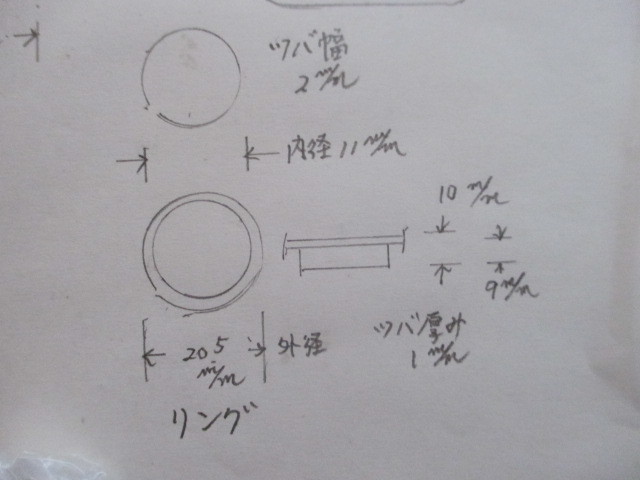 ツバ幅
2 m/m
内径 11 m/m
10 m/m
9 m/m
20 5 m/m
外径
ツバ厚み
1 m/m
リング